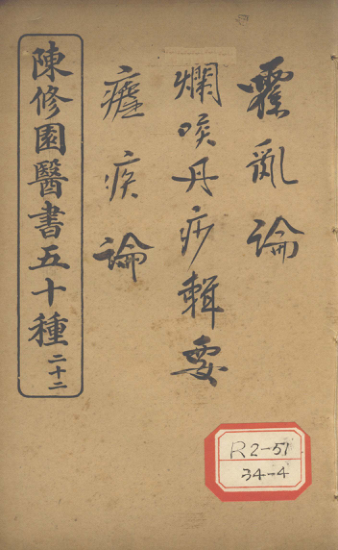 霍亂論
爛喉丹痧輯要
瘧疾論
陳修園醫書五十種 二十二
R2-51
34-4